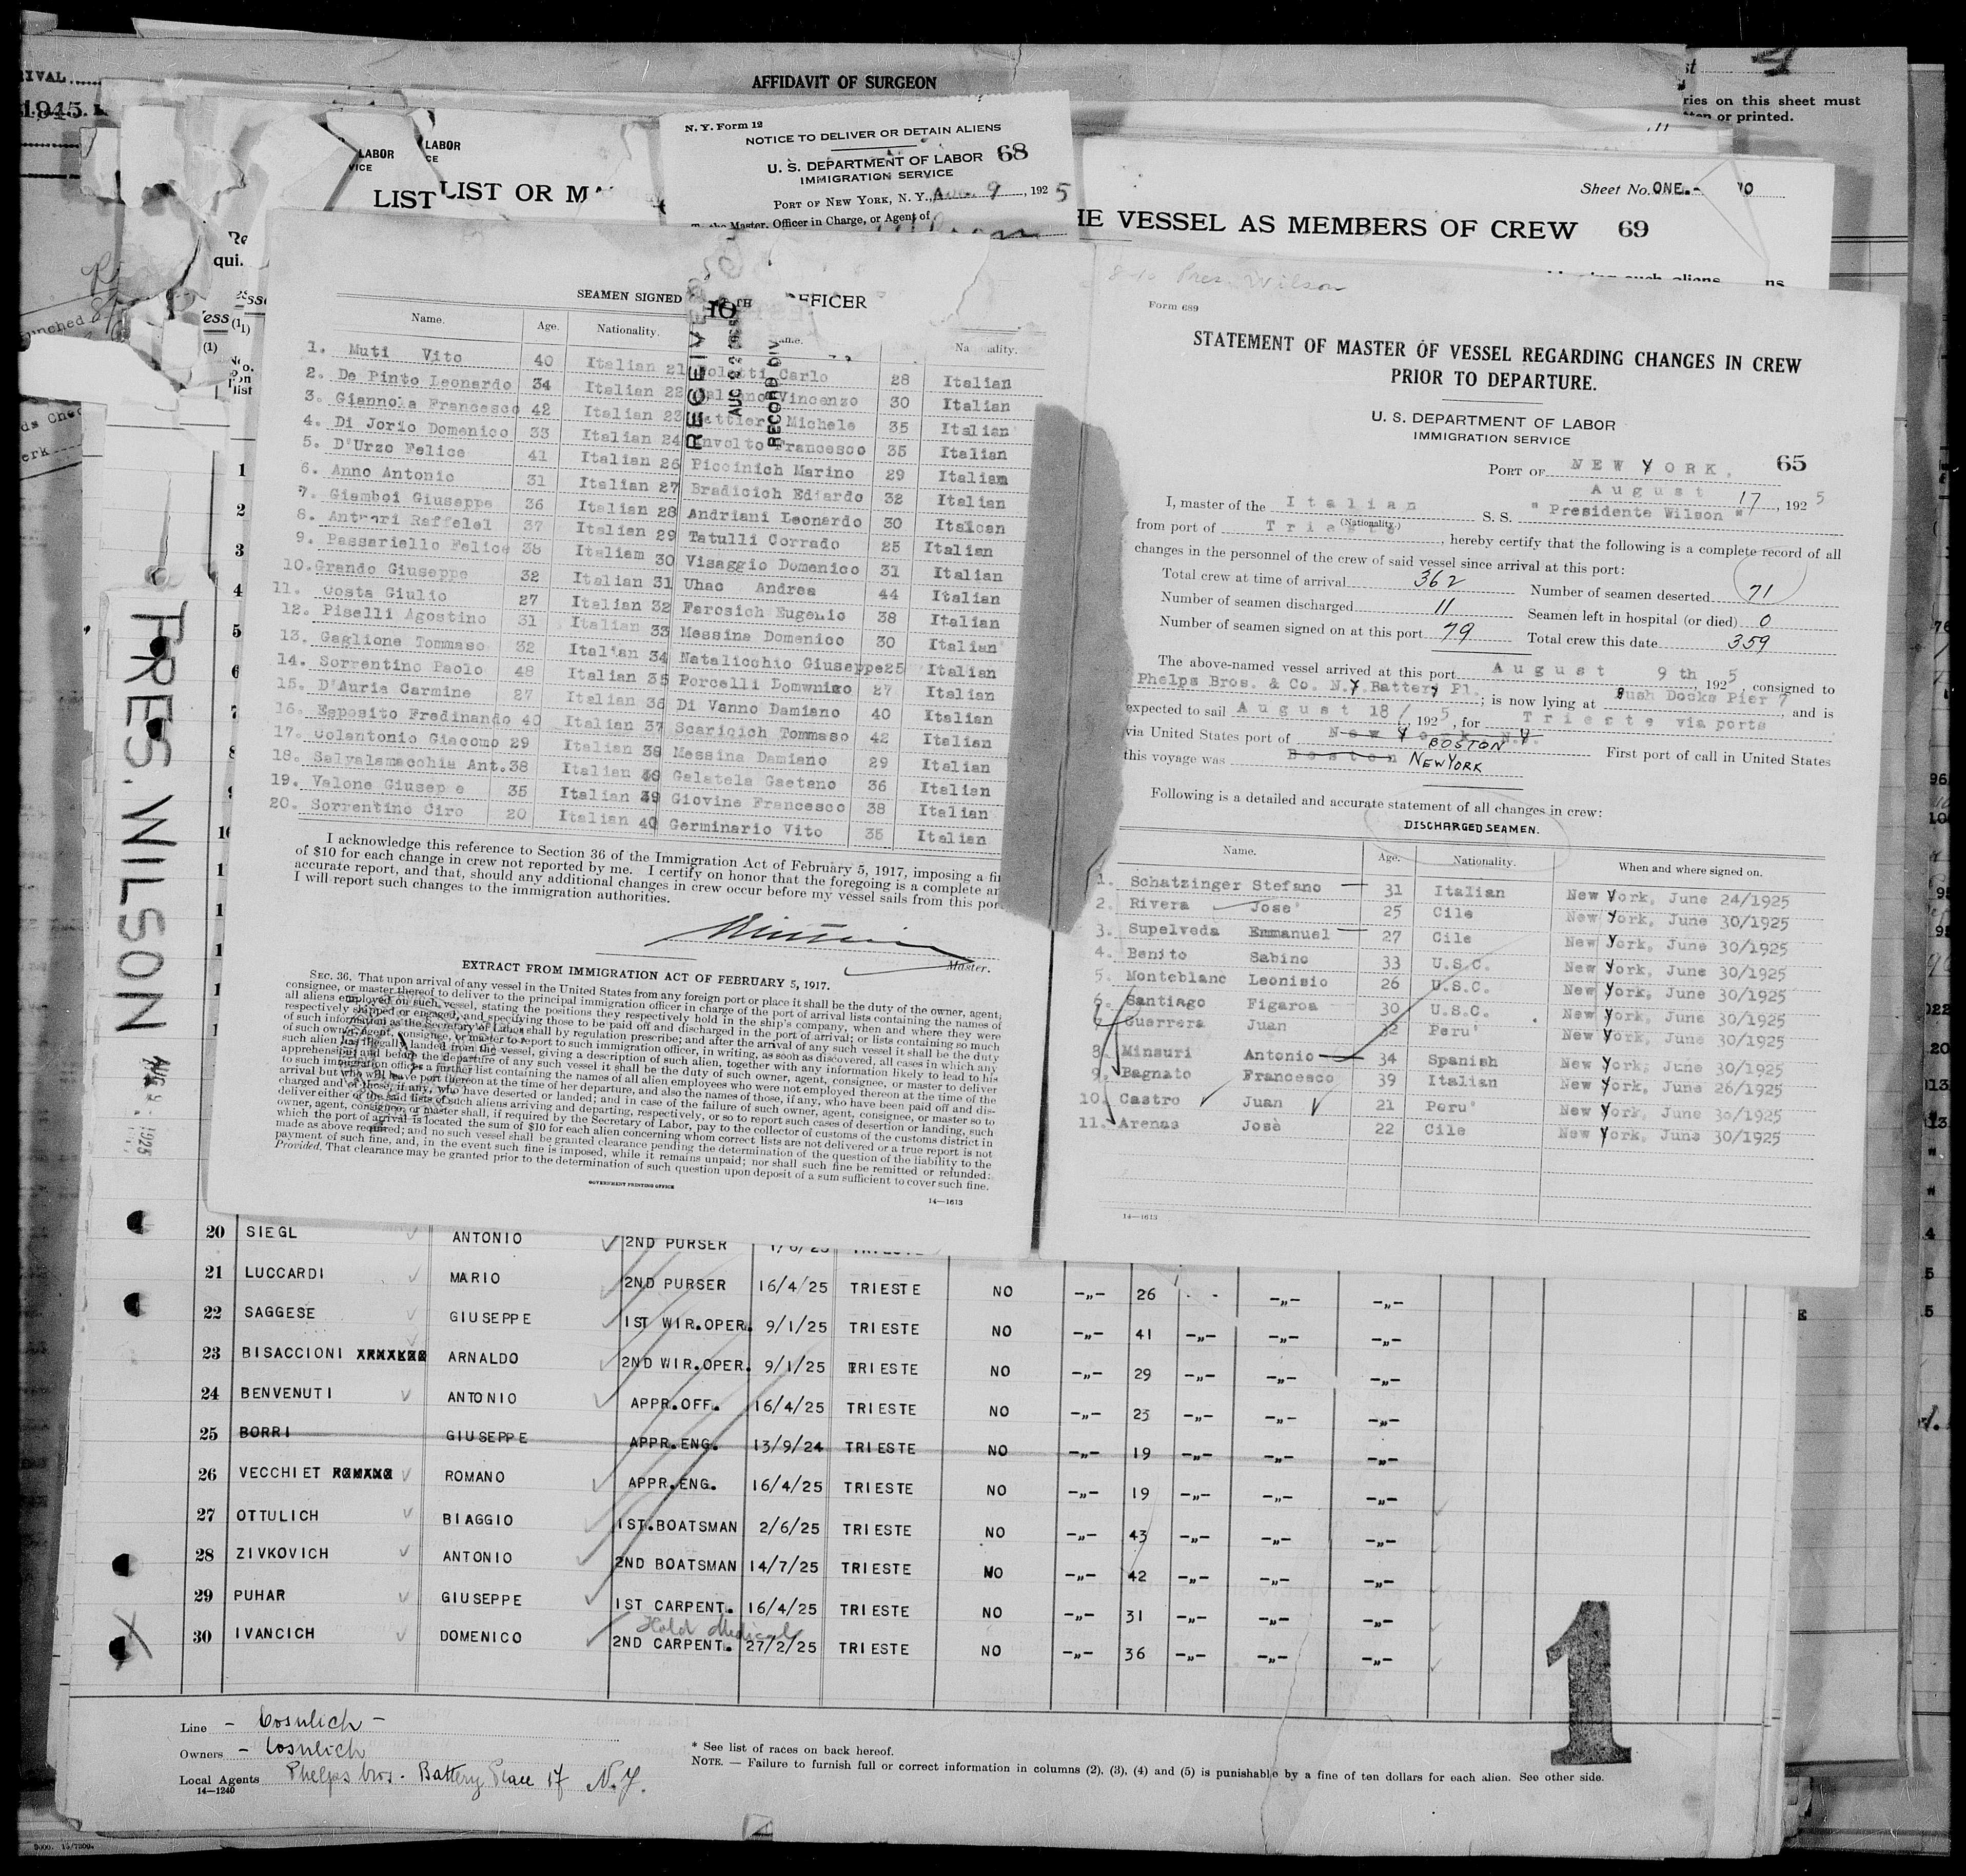 RIVAL
1945.
AFFIDAVIT OF SURGEON
ries on this sheet must
or printed.
LABOR
LABOR
VICE
CE
LIST
LIST OR
N. Y. Form 12
NOTICE TO DELIVER OR DETAIN ALIENS
U. S. DEPARTMENT OF LABOR 68
IMMIGRATION SERVICE
PORT OF NEW YORK, N. Y., 9, 1925
Master, Officer in Charge, or Agent of
Sheet No. ONE.-
HE VESSEL AS MEMBERS OF CREW 69
PRES. WILSON
AUG 9 1925
SEAMEN SIGNED
OFFICER
RECEIVED
AUG
RECORD DIV
Name. Age. Nationality.
1. Muti Vito 40 Italian 21 Carlo 28 Italian
2. De Pinto Leonardo 34 Italian 22 Vincenzo 30 Italian
3. Giannola Francesco 42 Italian 23 Michele 35 Italian
4. Di Jorio Domenico 33 Italian 24 Involto Francesco 35 Italian
5. D'Urzo Felice 41 Italian 26 Piccinich Marino 29 Italian
6. Anno Antonio 31 Italian 27 Bradicich Ediardo 32 Italian
7. Giamboi Giuseppe 36 Italian 28 Andriani Leonardo 30 Italian
8. Raffelel 37 Italian 29 Tatulli Corrado 25 Italian
9. Passariello Felice 38 Italiam 30 Visaggio Domenico 31 Italian
10. Grando Giuseppe 32 Italian 31 Uhac Andrea 44 Italian
11. Costa Giulio 27 Italian 32 Farosich Eugenio 38 Italian
12. Piselli Agostino 31 Italian 33 Messina Domenico 30 Italian
13. Gaglione Tommaso 32 Italian 34 Natalicchio Giuseppe 25 Italian
14. Sorrentino Paolo 48 Italian 35 Porcelli Domwnico 27 Italian
15. D'Auria Carmine 27 Italian 36 Di Vanno Damiano 40 Italian
16. Esposito Fredinando 40 Italian 37 Scaricich Tommaso 42 Italian
17. Colantonio Giacomo 29 Italian 38 Messina Damiano 29 Italian
18. Salvalamacchia Ant. 38 Italian Galatela Gaetano 36 Italian
19. Valone Giusep e 35 Italian 39 Giovine Francesco 38 Italian
20. Sorrentino Ciro 20 Italian 40 Germinario Vito 35 Italian
I acknowledge this reference to Section 36 of the Immigration Act of February 5, 1917, imposing a fi
of $10 for each change in crew not reported by me. I certify on honor that the foregoing is a complete an
accurate report, and that, should any additional changes in crew occur before my vessel sails from this por
I will report such changes to the immigration authorities.
Master.
EXTRACT FROM IMMIGRATION ACT OF FEBRUARY 5, 1917.
SEC. 36. That upon arrival of any vessel in the United States from any foreign port or place it shall be the duty of the owner, agent,
consignee, or master thereof to deliver to the principal immigration officer in charge of the port of arrival lists containing the names of
all aliens employed on such vessel, stating the positions they respectively hold in the ship's company, when and where they were
respectively shipped or engaged, and specifying those to be paid off and discharged in the port of arrival; or lists containing so much
of such information as the Secretary of Labor shall by regulation prescribe; and after the arrival of any such vessel it shall be the duty
of such owner, agent, consignee, or master to report to such immigration officer, in writing, as soon as discovered, all cases in which any
such alien has illegally landed from the vessel, giving a description of such alien, together with any information likely to lead to his
apprehension; and before the departure of any such vessel it shall be the duty of such owner, agent, consignee, or master to deliver
to such immigration officer a further list containing the names of all alien employees who were not employed thereon at the time of the
arrival but who will leave port thereon at the time of her departure, and also the names of those, if any, who have been paid off and dis-
charged and of those, if any, who have deserted or landed; and in case of the failure of such owner, agent, consignee, or master to
deliver either of the said lists of such aliens arriving and departing, respectively, or so to report such cases of desertion or landing, such
owner, agent, consignee, or master shall, if required by the Secretary of Labor, pay to the collector of customs of the customs district in
which the port of arrival is located the sum of $10 for each alien concerning whom correct lists are not delivered or a true report is not
made as above required; and no such vessel shall be granted clearance pending the determination of the question of the liability to the
payment of such fine, and, in the event such fine is imposed, while it remains unpaid; nor shall such fine be remitted or refunded:
Provided, That clearance may be granted prior to the determination of such question upon deposit of a sum sufficient to cover such fine.
GOVERNMENT PRINTING OFFICE
14—1613
8-10 Pres. Wilson
Form 689
STATEMENT OF MASTER OF VESSEL REGARDING CHANGES IN CREW
PRIOR TO DEPARTURE.
U. S. DEPARTMENT OF LABOR
IMMIGRATION SERVICE
PORT OF NEW YORK, 65
August 17, 1925
I, master of the Italian S. S. " Presidente Wilson "
(Nationality.)
from port of Trieste, hereby certify that the following is a complete record of all
changes in the personnel of the crew of said vessel since arrival at this port:
Total crew at time of arrival 362 Number of seamen deserted 71
Number of seamen discharged 11 Seamen left in hospital (or died) 0
Number of seamen signed on at this port 79 Total crew this date 359
The above-named vessel arrived at this port August 9 th 1925 consigned to
Phelps Bros. & Co. N.Y. Battery Pl.; is now lying at Bush Docks Pier 7, and is
expected to sail August 18, 1925, for Trieste via ports
via United States port of New York, N.Y. BOSTON First port of call in United States
this voyage was Boston NEW YORK
Following is a detailed and accurate statement of all changes in crew:
DISCHARGED SEAMEN.
Name. Age. Nationality. When and where signed on.
1. Schatzinger Stefano 31 Italian New York, June 24/1925
2. Rivera Jose' 25 Cile New York, June 30/1925
3. Supelveda Emmanuel 27 Cile New York, June 30/1925
4. Benito Sabino 33 U.S.C. New York, June 30/1925
5. Monteblanc Leonisio 26 U.S.C. New York, June 30/1925
6. Santiago Figaroa 30 U.S.C. New York, June 30/1925
7. Guerrera Juan 32 Peru' New York, June 30/1925
8. Minsuri Antonio 34 Spanish New York, June 30/1925
9. Bagnato Francesco 39 Italian New York, June 26/1925
10. Castro Juan 21 Peru' New York, June 30/1925
11. Arenas Josè 22 Cile New York, June 30/1925
14—1613
20 SIEGL ANTONIO 2ND PURSER
21 LUCCARDI MARIO 2ND PURSER 16/4/25 TRIESTE NO -„- 26 -„- -„-
22 SAGGESE GIUSEPPE 1ST WIR.OPER. 9/1/25 TRIESTE NO -„- 41 -„- -„- -„-
23 BISACCIONI ARNALDO 2ND WIR.OPER. 9/1/25 TRIESTE NO -„- 29 -„- -„- -„-
24 BENVENUTI ANTONIO APPR.OFF. 16/4/25 TRIESTE NO -„- 23 -„- -„- -„-
25 BORRI GIUSEPPE APPR.ENG. 13/9/24 TRIESTE NO -„- 19 -„- -„- -„-
26 VECCHIET ROMANO APPR.ENG. 16/4/25 TRIESTE NO -„- 19 -„- -„- -„-
27 OTTULICH BIAGGIO 1ST.BOATSMAN 2/6/25 TRIESTE NO -„- 43 -„- -„- -„-
28 ZIVKOVICH ANTONIO 2ND BOATSMAN 14/7/25 TRIESTE NO -„- 42 -„- -„- -„-
29 PUHAR GIUSEPPE 1ST CARPENT. 16/4/25 TRIESTE NO -„- 31 -„- -„- -„-
Hold Medical
30 IVANCICH DOMENICO 2ND CARPENT. 27/2/25 TRIESTE NO -„- 36 -„- -„- -„-
1
Line - Cosulich -
Owners - Cosulich
Local Agents Phelps bros. Battery Place 17 N.Y.
14—1240
* See list of races on back hereof.
NOTE. — Failure to furnish full or correct information in columns (2), (3), (4) and (5) is punishable by a fine of ten dollars for each alien. See other side.